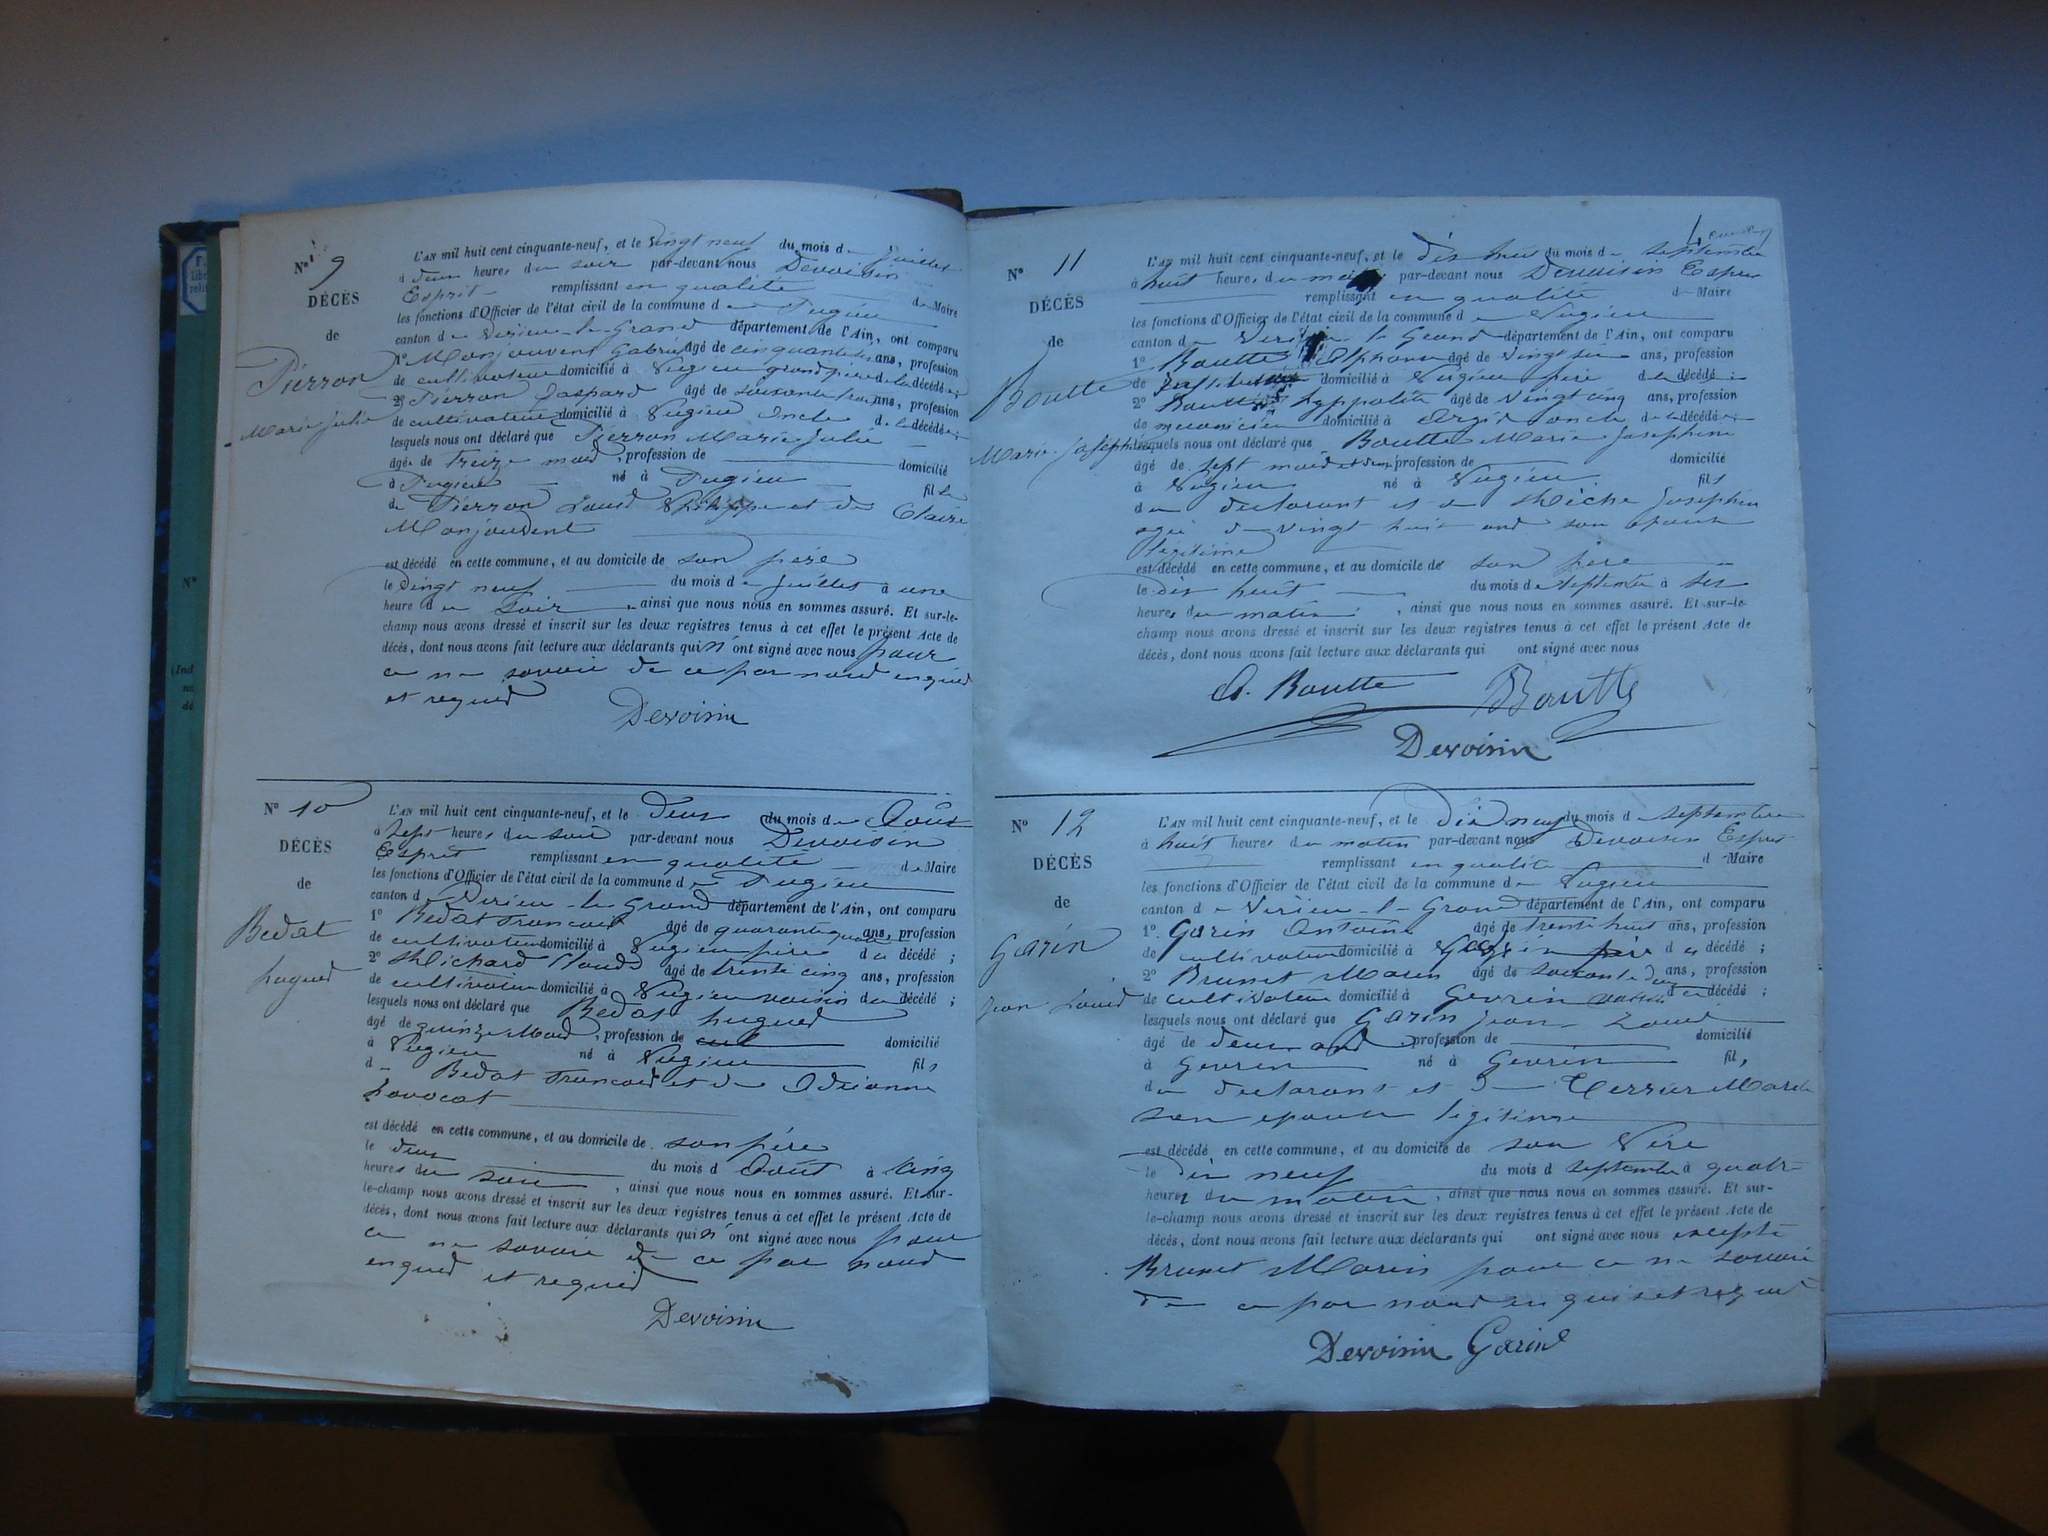 N° 9
DÉCÈS
de
Pierron
Marie Julie
L'AN mil huit cent cinquante-neuf, et le vingt neuf du mois de juillet
à deux heures du soir par-devant nous Devoisin
Esprit remplissant en qualité de Maire
les fonctions d'Officier de l'état civil de la commune de Pugieu
canton de Virieu-le-Grand département de l'Ain, ont comparu
1° Monjouvent Gabriel âgé de cinquante ans, profession
de cultivateur domicilié à Pugieu grand père de la décédée;
2° Pierron Gaspard âgé de soixante trois ans, profession
de cultivateur domicilié à Pugieu oncle de la décédée;
lesquels nous ont déclaré que Pierron Marie Julie
âgée de treize mois, profession de domicilié
à Pugieu né à Pugieu fille
de Pierron Louis Philippe et de Claire
Monjouvent
est décédé en cette commune, et au domicile de son père
le vingt neuf du mois de juillet à une
heure du soir, ainsi que nous nous en sommes assuré. Et sur-le-
champ nous avons dressé et inscrit sur les deux registres tenus à cet effet le présent Acte de
décès, dont nous avons fait lecture aux déclarants qui n'ont signé avec nous pour
ce ne savoir de ce par nous enquis
et requis
Devoisin
N° 10
DÉCÈS
de
Bedat
hugues
L'AN mil huit cent cinquante-neuf, et le deux du mois de Août
à sept heures du soir par-devant nous Devoisin
Esprit remplissant en qualité de Maire
les fonctions d'Officier de l'état civil de la commune de Pugieu
canton de Virieu-le-Grand département de l'Ain, ont comparu
1° Bedat francois âgé de quarante quatre ans, profession
de cultivateur domicilié à Pugieu père du décédé;
2° Michard Claude âgé de trente cinq ans, profession
de cultivateur domicilié à Pugieu voisin du décédé;
lesquels nous ont déclaré que Bedat hugues
âgé de quinze mois, profession de domicilié
à Pugieu né à Pugieu fils
de Bedat francois et de
Lavocat
est décédé en cette commune, et au domicile de son père
le deux du mois d Août à cinq
heures du soir, ainsi que nous nous en sommes assuré. Et sur-
le-champ nous avons dressé et inscrit sur les deux registres tenus à cet effet le présent Acte de
décès, dont nous avons fait lecture aux déclarants qui n'ont signé avec nous pour
ce ne savoir de ce par nous
enquis et requis
Devoisin
N° 11
DÉCÈS
de
Boutte
Marie Joséphine
L'AN mil huit cent cinquante-neuf, et le dix huit du mois de septembre
à huit heures du matin par-devant nous Devoisin Esprit
remplissant en qualité de Maire
les fonctions d'Officier de l'état civil de la commune de Pugieu
canton de Virieu le Grand département de l'Ain, ont comparu
1° Boutte Alphonse âgé de vingt six ans, profession
de domicilié à Pugieu père de la décédée;
2° Boutte hyppolite âgé de vingt cinq ans, profession
de mecanicien domicilié à oncle de la décédée;
lesquels nous ont déclaré que Boutte Marie Joséphine
âgé de sept mois et demi profession de domicilié
à Pugieu né à Pugieu fils
du déclarant et de Josephine
agée de vingt huit ans son épouse
légitime
est décédé en cette commune, et au domicile de son père
le dix huit du mois de septembre à six
heures du matin, ainsi que nous nous en sommes assuré. Et sur-le-
champ nous avons dressé et inscrit sur les deux registres tenus à cet effet le présent Acte de
décès, dont nous avons fait lecture aux déclarants qui ont signé avec nous
A. Boutte Boutte
Devoisin
N° 12
DÉCÈS
de
Garin
Jean Louis
L'AN mil huit cent cinquante-neuf, et le dix neuf du mois de septembre
à huit heures du matin par-devant nous Devoisin Esprit
remplissant en qualité d Maire
les fonctions d'Officier de l'état civil de la commune de Pugieu
canton de Virieu-le-Grand département de l'Ain, ont comparu
1° Garin Antoine âgé de trente huit ans, profession
de cultivateur domicilié à père du décédé;
2° Brunet Marin âgé de soixante deux ans, profession
de cultivateur domicilié à Gevrin voisin du décédé;
lesquels nous ont déclaré que Garin Jean Louis
âgé de deux ans, profession de domicilié
à Gevrin né à Gevrin fils
du déclarant et de Terrier Marie
son épouse légitime
est décédé en cette commune, et au domicile de son Père
le dix neuf du mois d septembre à quatre
heures du matin, ainsi que nous nous en sommes assuré. Et sur-
le-champ nous avons dressé et inscrit sur les deux registres tenus à cet effet le présent Acte de
décès, dont nous avons fait lecture aux déclarants qui ont signé avec nous excepté
Brunet Marin pour ce ne savoir
de ce par nous enquis et requis
Devoisin Garin